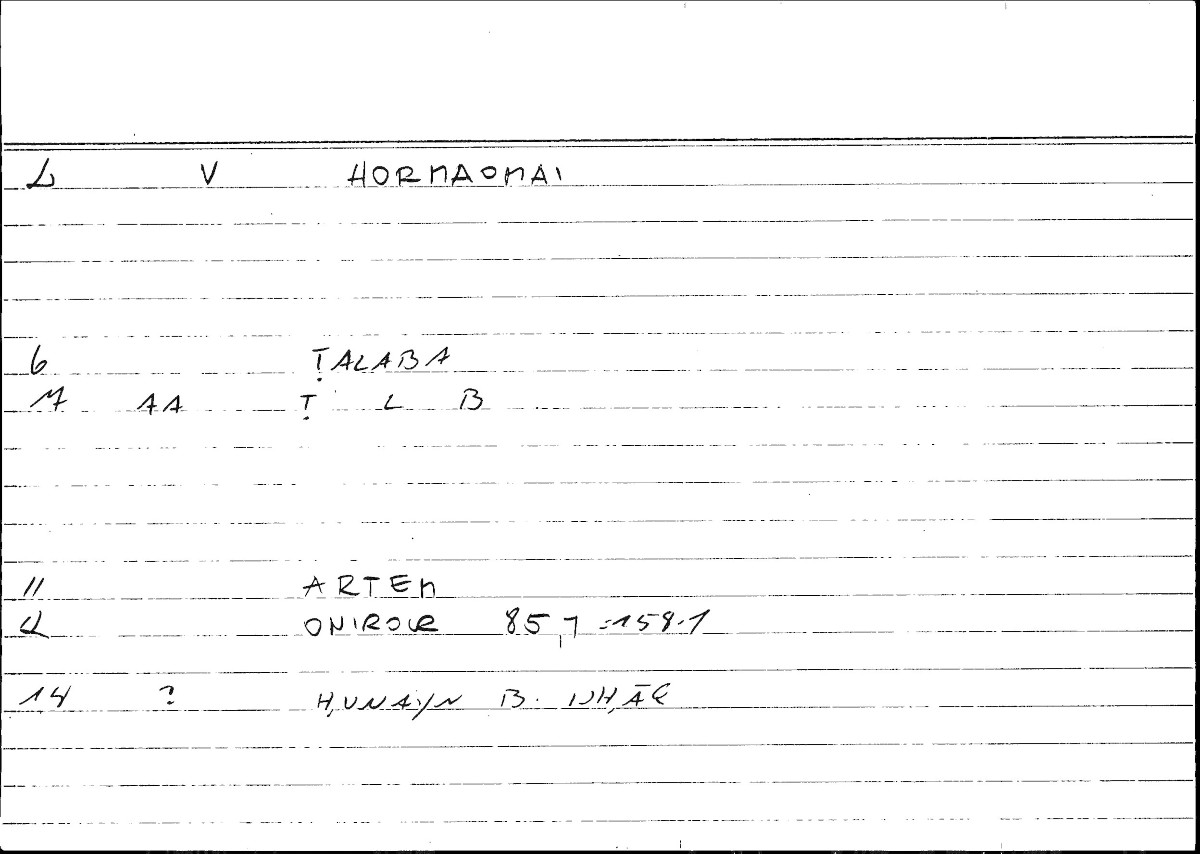 2 V HORMAOMAI
6 ṬALABA
7 AA Ṭ L B
11 ARTEM
12 ONIROCR 85,7 = 158.1
14 ? ḤUNAYN B. ISḤĀQ